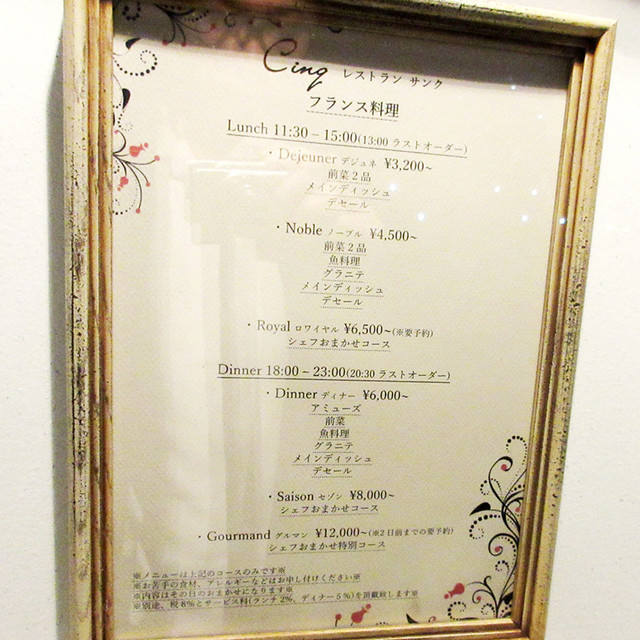 Cinq レストラン サンク
フランス料理
Lunch 11:30 – 15:00(13:00 ラストオーダー)
・Dejeuner デジュネ ¥3,200~
前菜2品
メインディッシュ
デセール
・Noble ノーブル ¥4,500~
前菜2品
魚料理
グラニテ
メインディッシュ
デセール
・Royal ロワイヤル ¥6,500~(※要予約)
シェフおまかせコース
Dinner 18:00 ~ 23:00(20:30 ラストオーダー)
・Dinner ディナー ¥6,000~
アミューズ
前菜
魚料理
グラニテ
メインディッシュ
デセール
・Saison セゾン ¥8,000~
シェフおまかせコース
・Gourmand グルマン ¥12,000~(※2日前までの要予約)
シェフおまかせ特別コース
※メニューは上記のコースのみです※
※お苦手の食材、アレルギーなどはお申し付けください※
※内容はその日のおまかせになります※
※別途、税8%とサービス料(ランチ2%、ディナー5%)を頂戴致します※